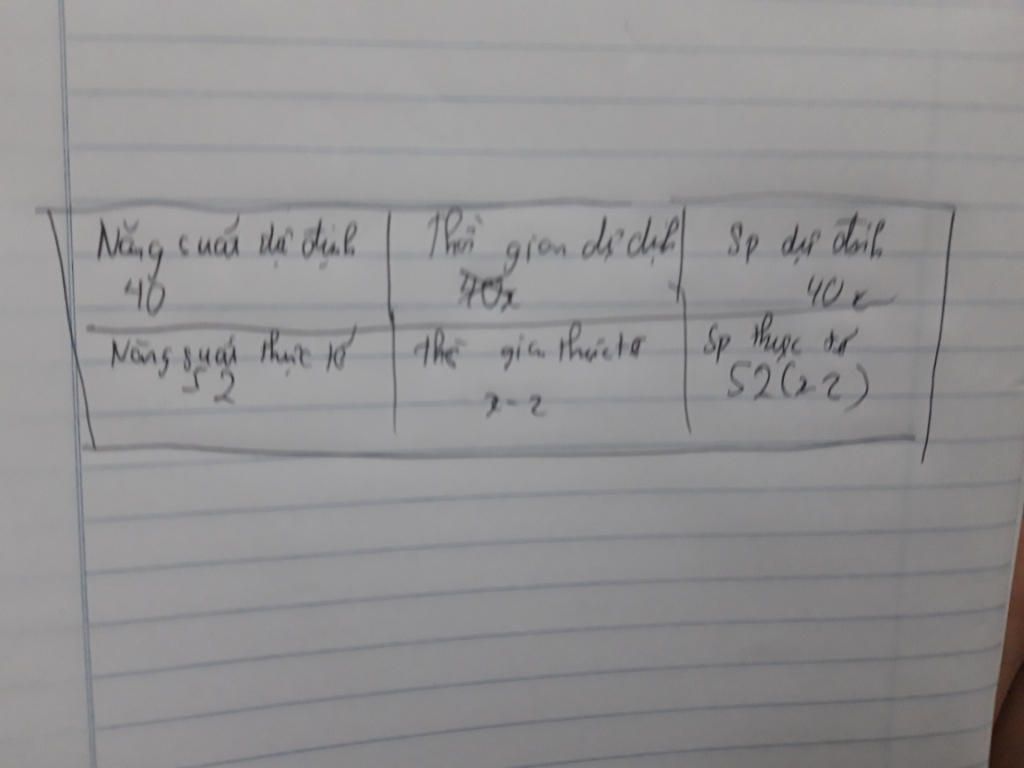 Năng suất dự định
Thời gian dự định
Sp dự định
40
x
40x
Năng suất thực tế
thời gian thực tế
Sp thực tế
52
x-2
52(x-2)